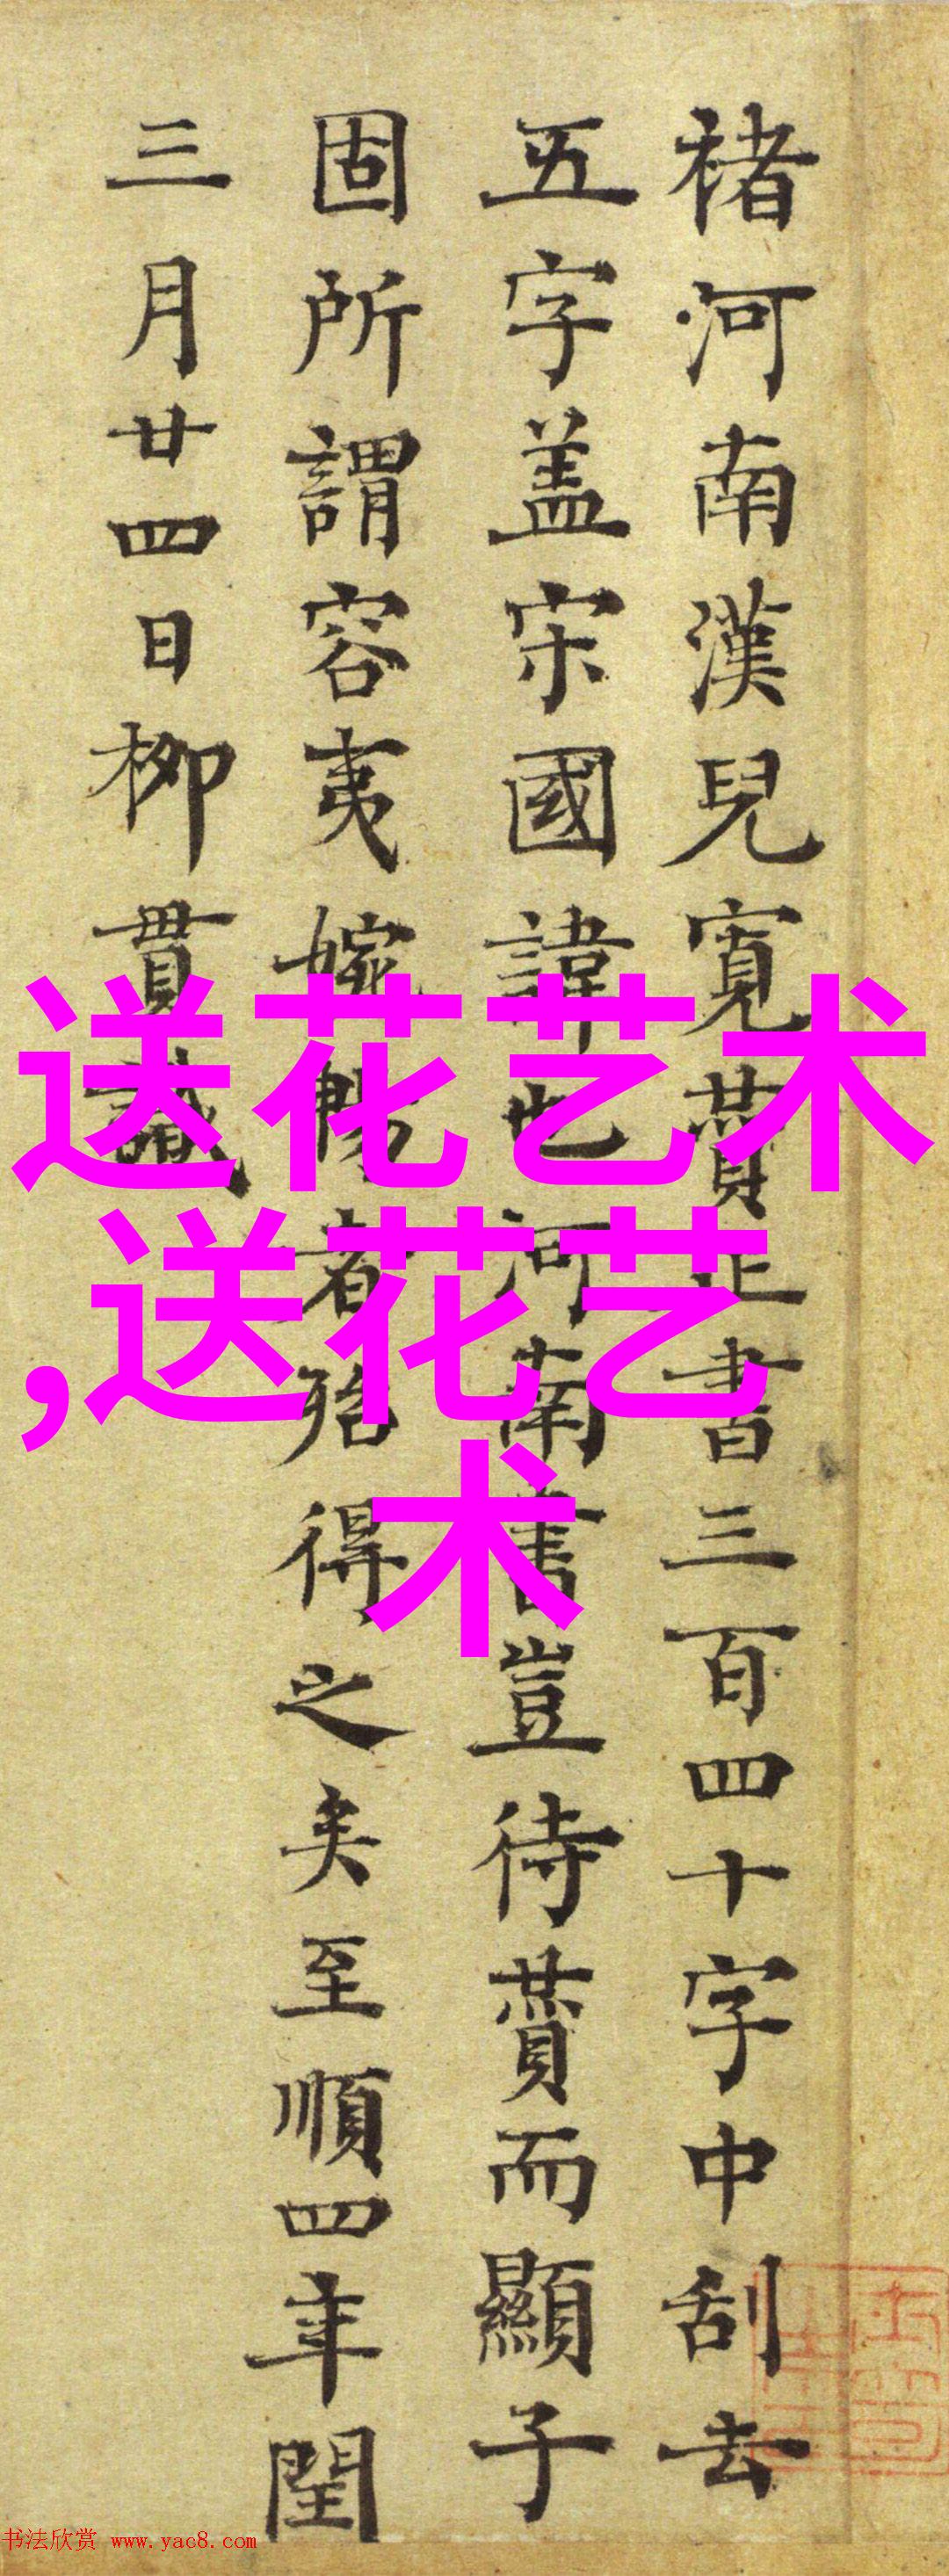 褚河南漢兒寬賛正書三百四十字中刮去
五字盖宋國諱也河南書豈待賛而顯子
固所謂容夷婉暢者殆得之矣至順四年閏
三月廿四日柳貫識
送花艺术
,送花艺
术
书法欣赏 www.yac8.com